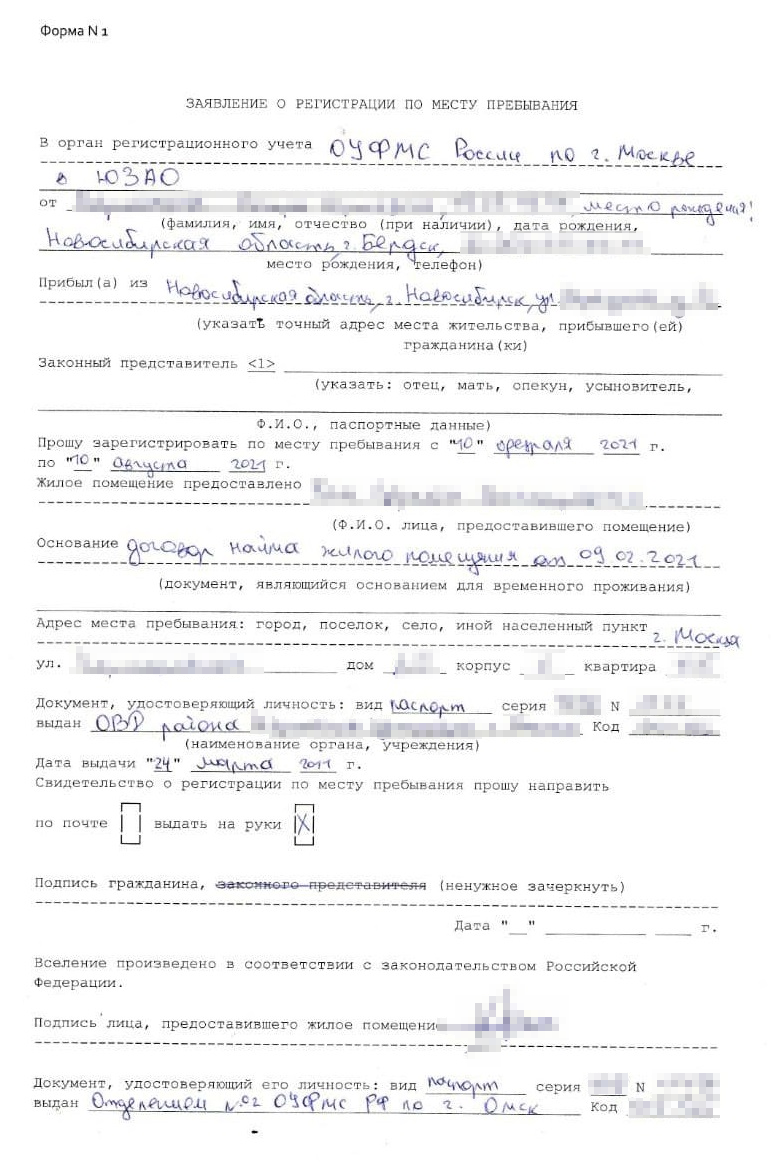 Форма N 1
ЗАЯВЛЕНИЕ О РЕГИСТРАЦИИ ПО МЕСТУ ПРЕБЫВАНИЯ
В орган регистрационного учета ОУФМС России по г. Москве
в ЮЗАО
от место рождения:
(фамилия, имя, отчество (при наличии), дата рождения,
Новосибирская область, г. Бердск,
место рождения, телефон)
Прибыл(а) из Новосибирская область, г. Новосибирск, ул.
(указать точный адрес места жительства, прибывшего(ей)
гражданина(ки)
Законный представитель <1>
(указать: отец, мать, опекун, усыновитель,
Ф.И.О., паспортные данные)
Прошу зарегистрировать по месту пребывания с "10" февраля 2021 г.
по "10" августа 2021 г.
Жилое помещение предоставлено
(Ф.И.О. лица, предоставившего помещение)
Основание договор найма жилого помещения от 09.02.2021
(документ, являющийся основанием для временного проживания)
Адрес места пребывания: город, поселок, село, иной населенный пункт г. Москва
ул. дом корпус квартира
Документ, удостоверяющий личность: вид паспорт серия N
выдан ОВД района Код
(наименование органа, учреждения)
Дата выдачи "24" марта 2011 г.
Свидетельство о регистрации по месту пребывания прошу направить
по почте выдать на руки X
Подпись гражданина, законного представителя (ненужное зачеркнуть)
Дата "__" г.
Вселение произведено в соответствии с законодательством Российской
Федерации.
Подпись лица, предоставившего жилое помещение
Документ, удостоверяющий его личность: вид паспорт серия N
выдан Отделением №2 ОУФМС РФ по г. Омск Код